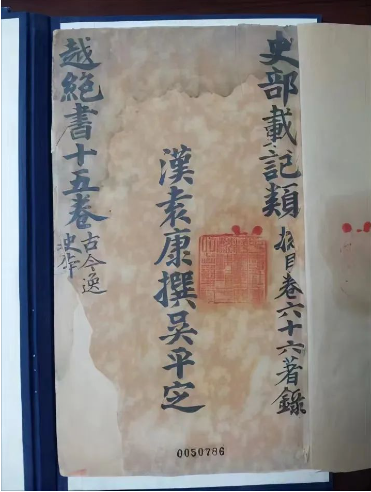 史部載記類 捴目卷六十六著錄
漢袁康撰吳平定
越絕書十五卷
古今逸
史
0050786